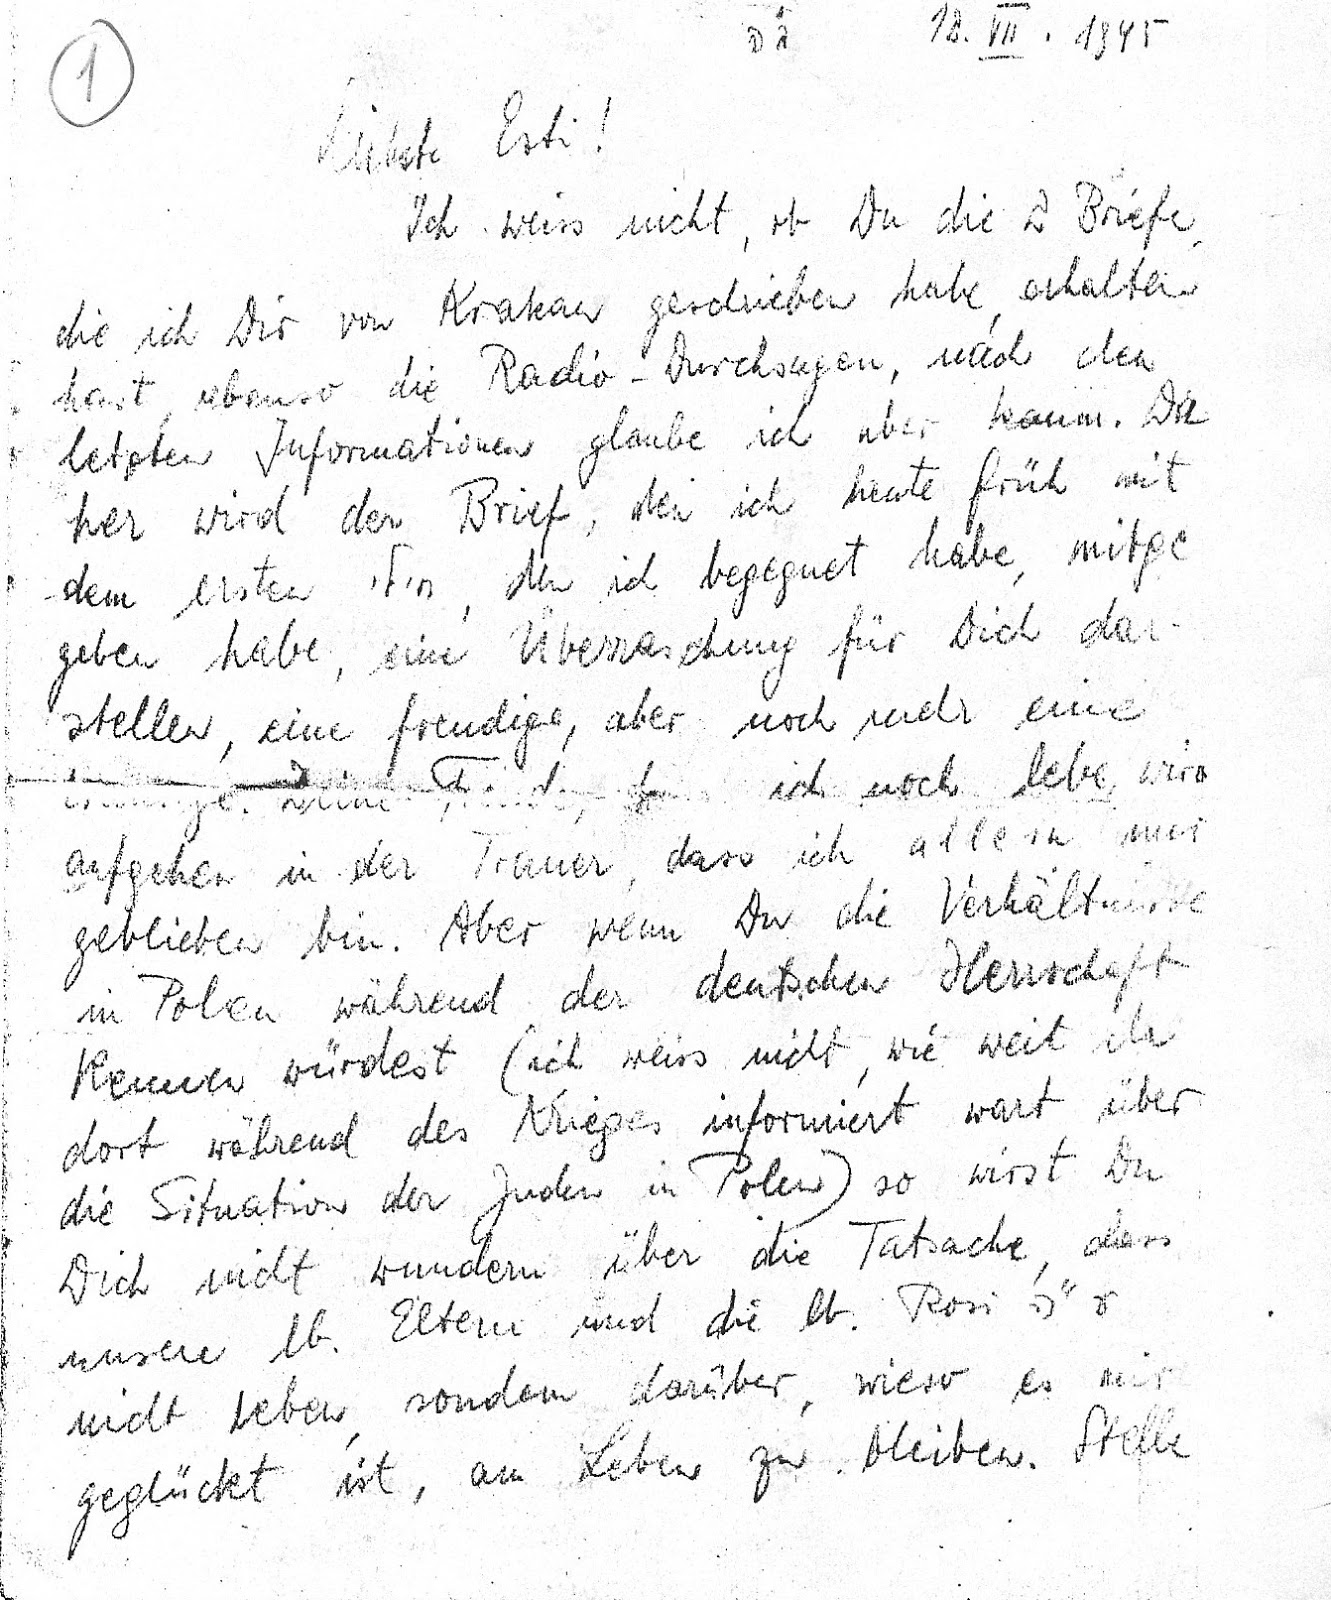 1
12. VII. 1945
Liebste Esti!
Ich weiss nicht, ob Du die 2 Briefe,
die ich Dir von Krakau geschrieben habe, erhalten
hast, ebenso die Radio-Durchsagen, nach den
letzten Informationen glaube ich aber kaum. Da
her wird der Brief, den ich heute früh mit
dem ersten חייל, den ich begegnet habe, mitge
geben habe, eine Überraschung für Dich dar-
stellen, eine freudige, aber noch mehr eine
traurige. Deine Freude, ich noch lebe, wird
aufgehen in der Trauer, dass ich allein nur
geblieben bin. Aber wenn Du die Verhältnisse
in Polen während der deutschen Herrschaft
kennen würdest (ich weiss nicht, wie weit ihr
dort während des Krieges informiert wart über
die Situation der Juden in Polen) so wirst Du
Dich nicht wundern über die Tatsache, dass
unsere lb. Eltern und die lb. Rosi
nicht leben, sondern darüber, wieso es mir
geglückt ist, am Leben zu bleiben. Stelle